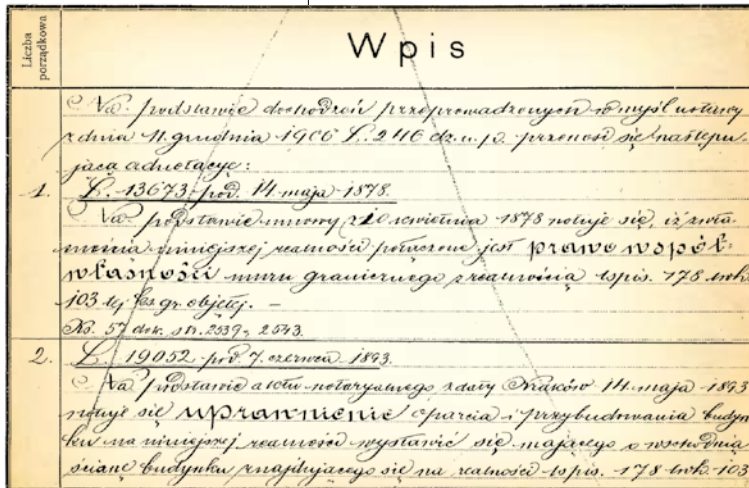 Liczba
porządkowa
Wpis
Na podstawie dochodzeń przeprowadzonych w myśl ustawy
z dnia 11. grudnia 1906 L. 246 dz. u. p. przenosi się następu-
jącą adnotacyę:
1. L. 13673 pod. 14. maja 1878.
Na podstawie umowy z 10 kwietnia 1878 notuje się, iż z
niniejszej realności połączone jest prawo współ-
własności muru granicznego z realnością lspis. 178 lwh.
103 tej ks. gr. objętej. —
Ks. 57 dok. str. 2539, 2543.
2. L. 19052 pod. 7. czerwca 1893.
Na podstawie aktu notaryalnego z daty Kraków 14. maja 1893
notuje się uprawnienie oparcia i przybudowania budyn-
ku na niniejszej realności wystawić się mającego o wschodnią
ścianę budynku znajdującego się na realności lspis. 178 lwh. 103